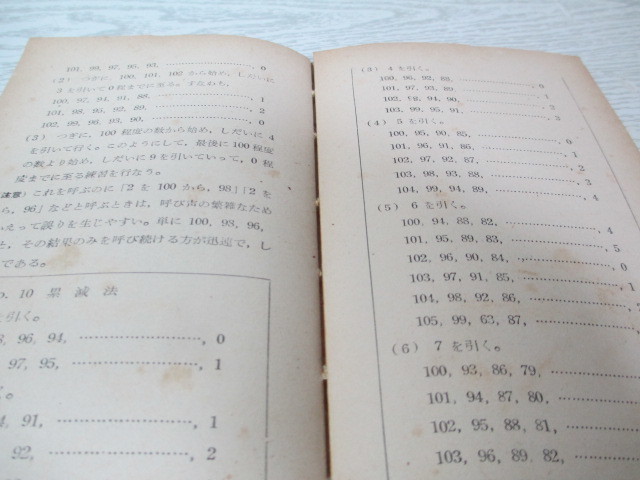 101, 99, 97, 95, 93, ……………… 0
(2) つぎに, 100, 101, 102 から始め, しだいに
3 を引いて0 位までに至る。すなわち,
100, 97, 94, 91, 88, ……………… 1
101, 98, 95, 92, 89, ……………… 2
102, 99, 96, 93, 90, ……………… 0
(3) つぎに, 100 程度の数から始め, しだいに 4
を引いて行く。このようにして, 最後に 100 程度
の数より始め, しだいに 9 を引いていって, 0 程
度までに至る練習を行なう。
(注意) これを呼ぶのに「2 を 100 から, 98」「2 を
ら, 96」などと呼ぶときは, 呼び声の繁雑なため
えって誤りを生じやすい。単に 100, 98, 96,
と, その結果のみを呼び続ける方が迅速で, し
である。
o. 10 累減法
を引く。
8, 96, 94, ………………, 0
97, 95, ………………, 1
く。
4, 91, ………………, 1
92, ………………, 2
(3) 4 を引く。
100, 96, 92, 88, ………………
101, 97, 93, 89, ………………
102, 98, 94, 90, ………………, 2
103, 99, 95, 91, ………………, 3
(4) 5 を引く。
100, 95, 90, 85, ………………, 0
101, 96, 91, 86, ………………, 1
102, 97, 92, 87, ………………, 2
103, 98, 93, 88, ………………, 3
104, 99, 94, 89, ………………, 4
(5) 6 を引く。
100, 94, 88, 82, ………………, 4
101, 95, 89, 83, ………………, 5
102, 96, 90, 84, ………………, 0
103, 97, 91, 85, ………………, 1
104, 98, 92, 86, ………………, 2
105, 99, 63, 87, ………………,
(6) 7 を引く。
100, 93, 86, 79, ………………
101, 94, 87, 80, ………………
102, 95, 88, 81, ………………
103, 96, 89, 82, ………………